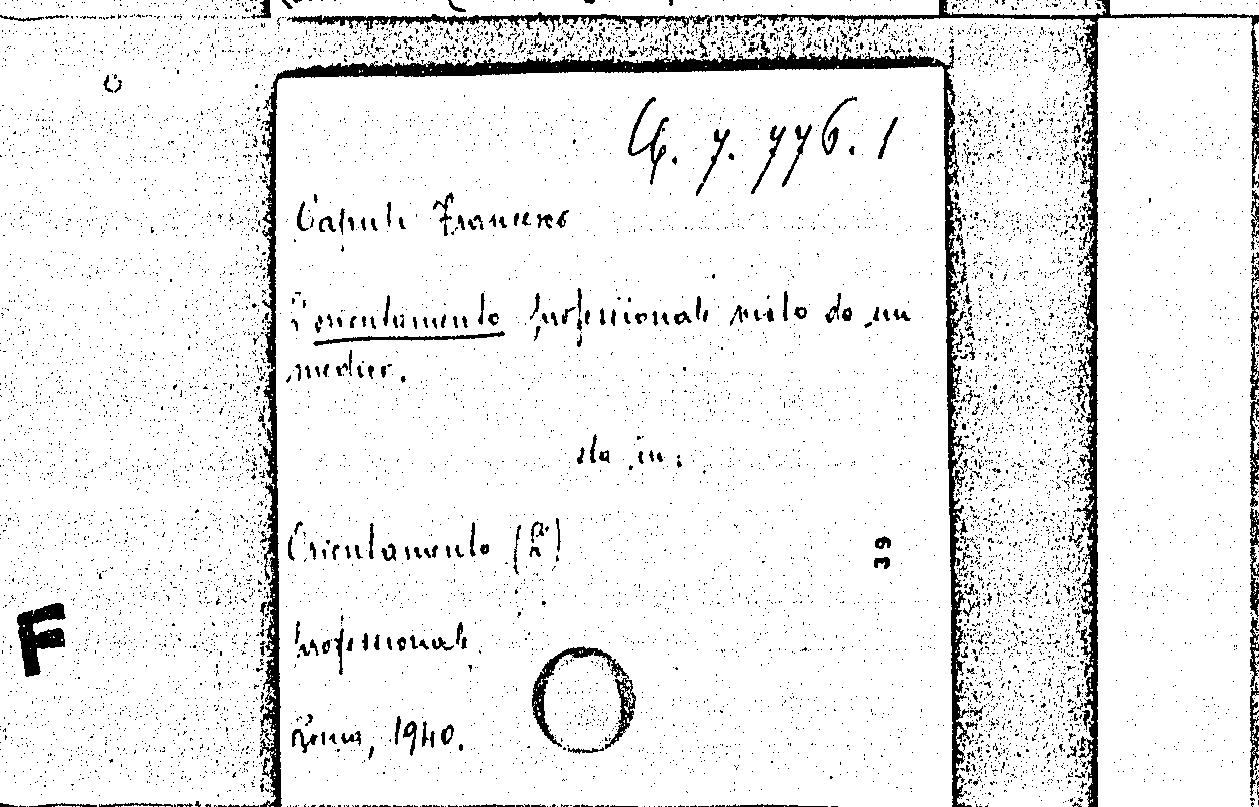 7. 776. 1
Caputi Francesco
L'orientamento professionale visto da un
medico.
sta in:
Orientamento (L')
39
F
professionale.
Roma, 1940.